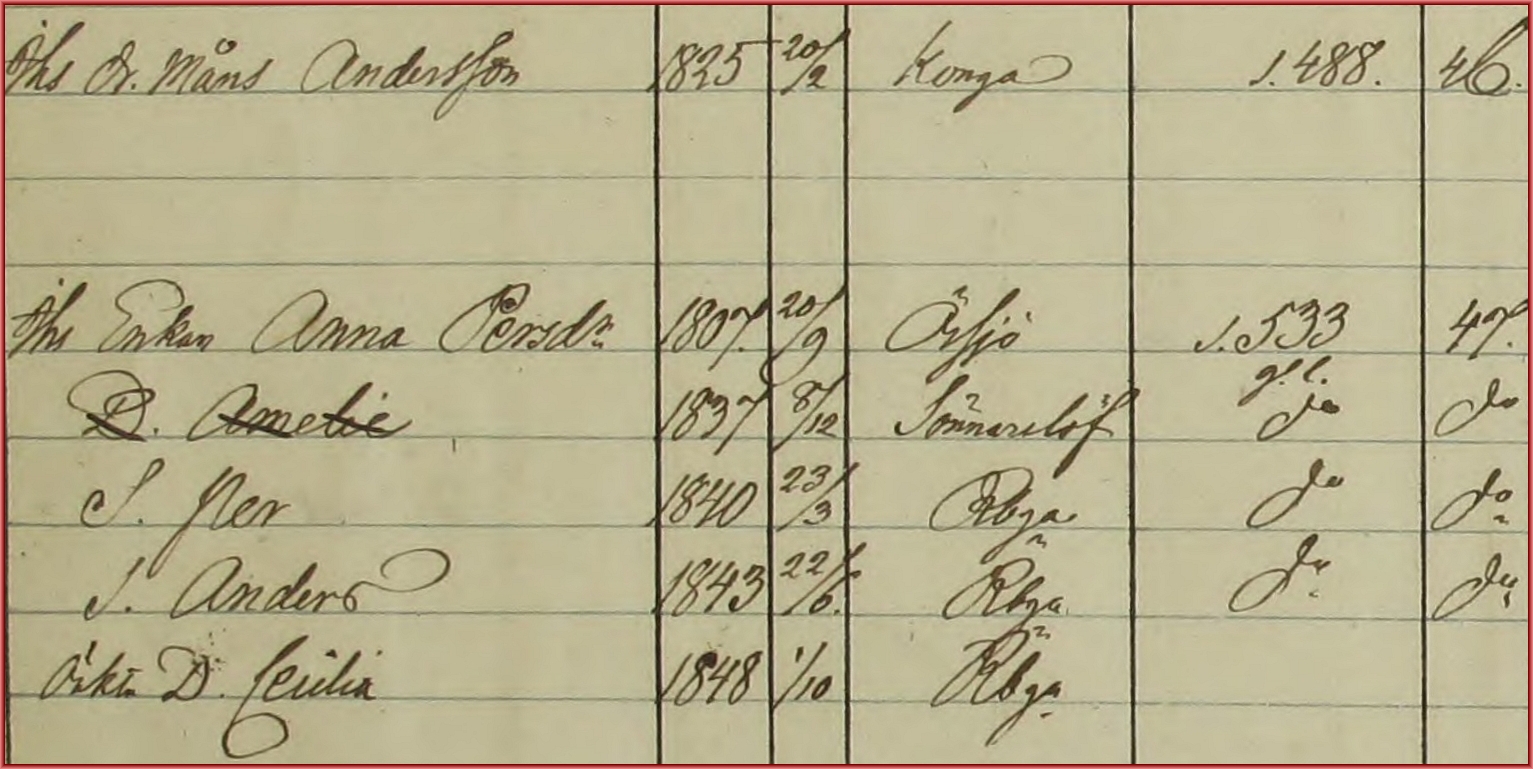 Ihs Dr. Måns Andersson 1825 20/2 Konga s. 488. 46.
Ihs Enkan Anna Persdr 1807. 20/9 Össjö s. 533 47.
g. l.
D. Amelie 1837 8/12 Sönnarslöf do do
S. Per 1840 23/3 Rbga do do
S. Anders 1843 22/6. Rbga do do
oäkta D. Cecilia 1848 1/10 Rbga